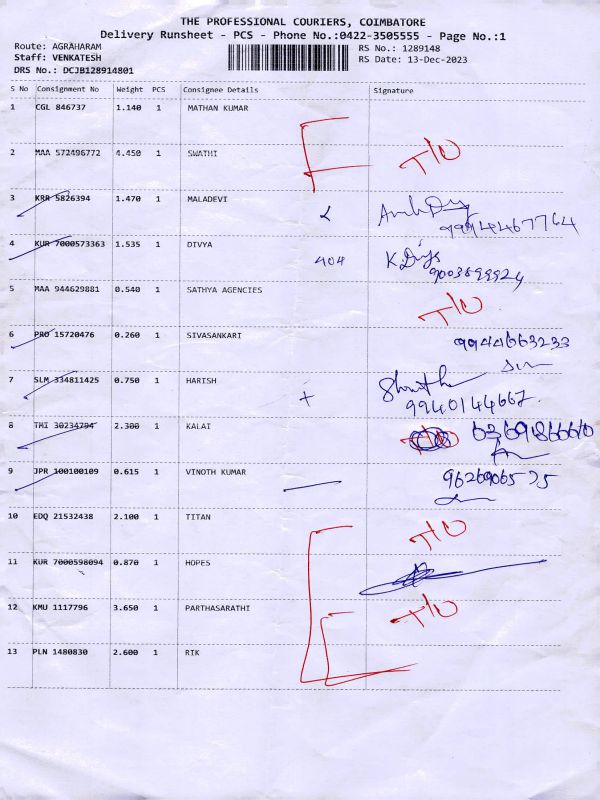 THE PROFESSIONAL COURIERS, COIMBATORE
Delivery Runsheet - PCS - Phone No.:0422-3505555 - Page No.:1
Route: AGRAHARAM
Staff: VENKATESH
DRS No.: DCJB128914801
RS No.: 1289148
RS Date: 13-Dec-2023
S No Consignment No Weight PCS Consignee Details Signature
1 CGL 846737 1.140 1 MATHAN KUMAR
2 MAA 572496772 4.450 1 SWATHI T/O
3 KRR 5826394 1.470 1 MALADEVI
9994467764
4 KUR 7000573363 1.535 1 DIVYA 404 K.Divya
9003899924
5 MAA 944629881 0.540 1 SATHYA AGENCIES T/O
6 PRO 15720476 0.260 1 SIVASANKARI 9944663233
7 SLM 334811425 0.750 1 HARISH
9940144667.
8 TMI 30234794 2.300 1 KALAI
9 JPR 100100109 0.615 1 VINOTH KUMAR 9626906575
10 EDQ 21532438 2.100 1 TITAN T/O
11 KUR 7000598094 0.870 1 HOPES
12 KMU 1117796 3.650 1 PARTHASARATHI T/O
13 PLN 1480830 2.600 1 RIK